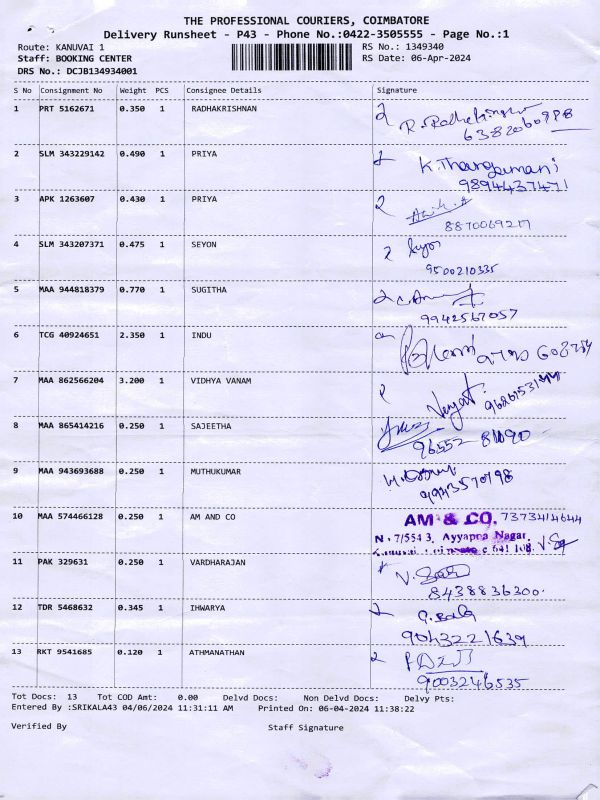 THE PROFESSIONAL COURIERS, COIMBATORE
Delivery Runsheet - P43 - Phone No.:0422-3505555 - Page No.:1
Route: KANUVAI 1 RS No.: 1349340
Staff: BOOKING CENTER RS Date: 06-Apr-2024
DRS No.: DCJB134934001
S No Consignment No Weight PCS Consignee Details Signature
1 PRT 5162671 0.350 1 RADHAKRISHNAN
6382060998
2 SLM 343229142 0.490 1 PRIYA K. Thangamani
9894437471
3 APK 1263607 0.430 1 PRIYA
8870069217
4 SLM 343207371 0.475 1 SEYON
9500210335
5 MAA 944818379 0.770 1 SUGITHA
9942567057
6 TCG 40924651 2.350 1 INDU
7 MAA 862566204 3.200 1 VIDHYA VANAM
8 MAA 865414216 0.250 1 SAJEETHA
9 MAA 943693688 0.250 1 MUTHUKUMAR
9943570198
10 MAA 574466128 0.250 1 AM AND CO AM & CO. 7373414644
N. 7/554 3, Ayyappa Nagar,
11 PAK 329631 0.250 1 VARDHARAJAN
8438836300.
12 TDR 5468632 0.345 1 IHWARYA
9043221639
13 RKT 9541685 0.120 1 ATHMANATHAN
9003246535
Tot Docs: 13 Tot COD Amt: 0.00 Delvd Docs: Non Delvd Docs: Delvy Pts:
Entered By :SRIKALA43 04/06/2024 11:31:11 AM Printed On: 06-04-2024 11:38:22
Verified By Staff Signature